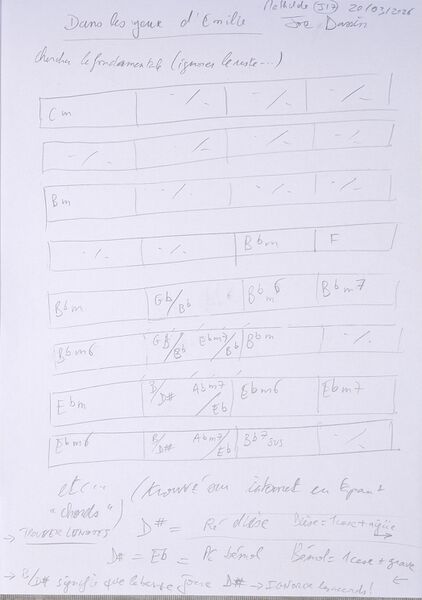 Mathilde (J17) 20/03/2026
Dans les yeux d'Emilie Joe Dassin
chercher le fondamentale (ignorer le reste...)
Cm -/- -/- -/-
-/- -/- -/- -/-
Bm -/- -/- -/-
-/- -/- Bbm F
Bbm Gb/Bb Bbm6 Bbm7
Bbm6 Gb/Bb Ebm7/Bb Bbm -/-
Ebm B/D# Abm7/Eb Ebm6 Ebm7
Ebm6 B/D# Abm7/Eb Bb7sus -/-
etc... (trouvé sur internet en
"chords")
→ TROUVER D# = Ré dièse Dièse = 1 case + aigüe
D# = Eb = bémol Bémol = 1 case + grave
→ B/D# signifie que la basse joue D# → IGNORER